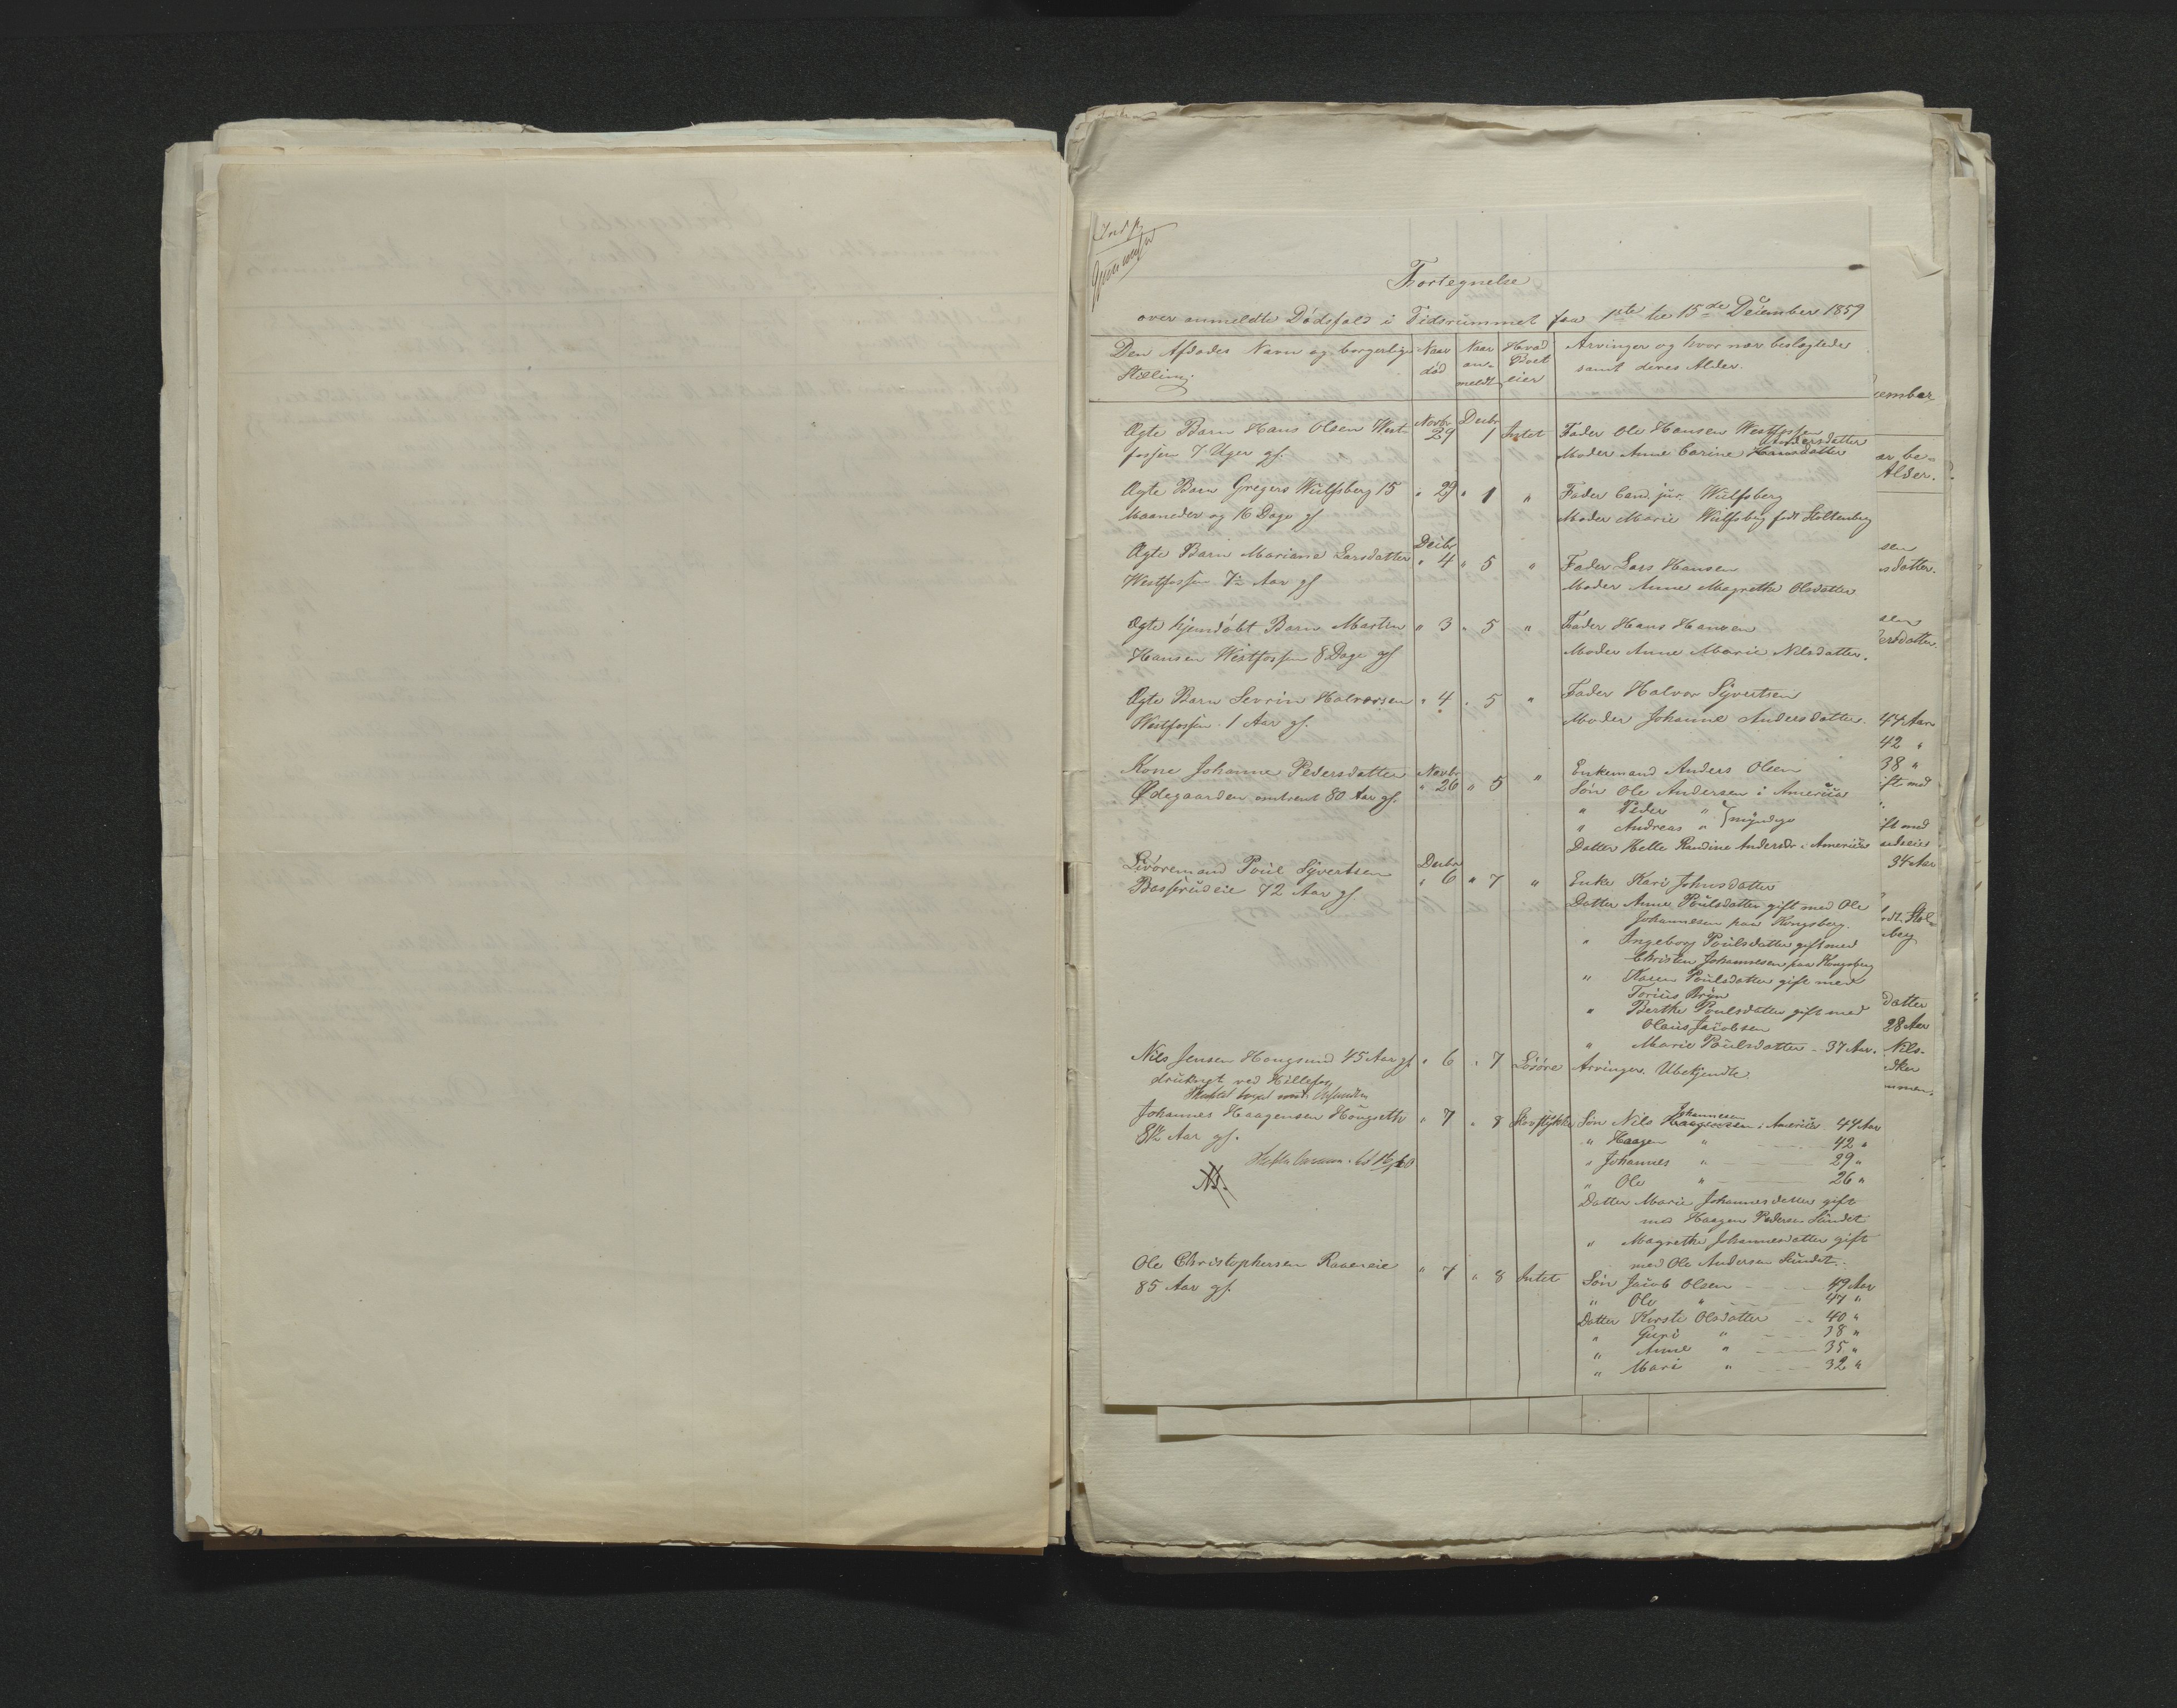 Fortegnelse
over anmeldte Dödsfald i Tidsrummet fra 1ste til 15de December 1859
Den Afdödes Navn og borgerlige Stilling.
Naar död
Naar anmeldt
Hvad Boet eier
Arvinger og hvor nær beslægtede samt deres Alder.
Ægte Barn Hans Olsen West- Novbr 29 Decbr 1 Intet Fader Ole Hansen Westfossen
fossen 7 Uger gl. Moder Anne Carine Hansdatter Andersdatter
Ægte Barn Gregers Wulfsberg 15 " 29 " 1 " Fader Cand. jur. Wulfsberg
Maaneder og 16 Dage gl Moder Marie Wulfsberg født Stoltenberg
Ægte Barn Mariane Larsdatter Decbr " 4 " 5 " Fader Lars Hansen
Westfossen 7½ Aar gl Moder Anne Magrethe Olsdatter
Ægte hjemdöbt Barn Martin " 3 " 5 " Fader Hans Hansen
Hansen Westfossen 8 Dage gl Moder Anne Marie Nilsdatter.
Ægte Barn Sevrin Halvorsen " 4 " 5 " Fader Halvor Syvertsen
Westfossen 1 Aar gl. Moder Johanne Andersdatter.
Kone Johanne Pedersdatter Novbr " 26 " 5 " Enkemand Anders Olsen
Ødegaarden omtrent 80 Aar gl. Sön Ole Andersen i America
" Peder " } myndige
" Andreas "
Datter Helle Randine Andersdr i America
Livöremand Poul Syvertsen Decbr " 6 " 7 " Enke Kari Johnsdatter
Basserudeie 72 Aar gl. Datter Anne Poulsdatter gift med Ole
Johannesen paa Kongsberg.
" Ingeborg Poulsdatter gift med
Christen Johannesen paa Kongsberg
" Karen Poulsdatter gift med
Torius Bryn
" Berthe Poulsdatter gift med
Olaus Jacobsen
" Marie Poulsdatter - 37 Aar.
Nils Jensen Hougsund 45 Aar gl. " 6 " 7 Lösöre Arvinger Ubekjendte
druknet ved Hellefos
Johannes Haagensen Hougsette " 7 " 8 Sön Nils Haagensen Johannesen i America 44 Aar
81½ Aar gl. " Haagen " 42 "
" Johannes " 29 "
" Ole " 26 "
Datter Marie Johannesdatter gift
med Haagen Pedersen Sundet
" Magrethe Johannesdatter gift
med Ole Andersen Sundet.
Ole Christophersen Raaeneie " 7 " 8 Intet Sön Jacob Olsen 49 Aar
85 Aar gl. " Ole " 47 "
Datter Kirsti Olsdatter 40 "
" Guri " 38 "
" Anne " 35 "
" Mari " 32 "
ember
ær be-
Alder.
sen
sdatter.
sen
ersdatter.
44 Aar
42 "
38 "
ift med
ift med
34 Aar
berg
datter
28 Aar
Nils-